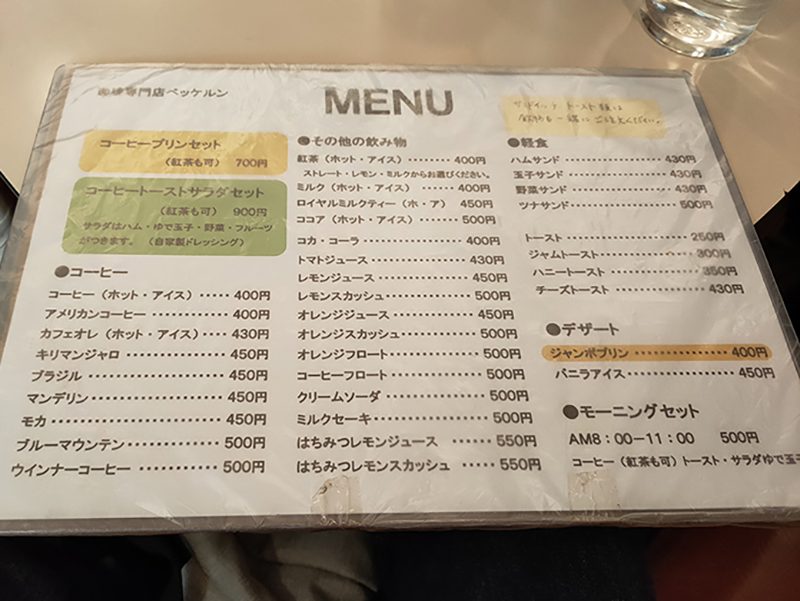 珈琲専門店ペッケルン
MENU
サンドイッチ トースト類は
飲物と一緒にご注文ください。
コーヒープリンセット
(紅茶も可) 700円
コーヒートーストサラダセット
(紅茶も可) 900円
サラダはハム・ゆで玉子・野菜・フルーツ
がつきます。 (自家製ドレッシング)
●コーヒー
コーヒー(ホット・アイス)‥‥‥400円
アメリカンコーヒー‥‥‥‥‥400円
カフェオレ(ホット・アイス)‥‥430円
キリマンジャロ‥‥‥‥‥‥450円
ブラジル‥‥‥‥‥‥‥‥450円
マンデリン‥‥‥‥‥‥‥450円
モカ‥‥‥‥‥‥‥‥‥‥450円
ブルーマウンテン‥‥‥‥‥500円
ウインナーコーヒー‥‥‥‥500円
●その他の飲み物
紅茶(ホット・アイス)‥‥‥‥400円
ストレート・レモン・ミルクからお選びください。
ミルク(ホット・アイス)‥‥‥400円
ロイヤルミルクティー(ホ・ア) 450円
ココア(ホット・アイス)‥‥‥500円
コカ・コーラ‥‥‥‥‥‥‥400円
トマトジュース‥‥‥‥‥‥430円
レモンジュース‥‥‥‥‥‥450円
レモンスカッシュ‥‥‥‥‥500円
オレンジジュース‥‥‥‥‥450円
オレンジスカッシュ‥‥‥‥500円
オレンジフロート‥‥‥‥‥500円
コーヒーフロート‥‥‥‥‥500円
クリームソーダ‥‥‥‥‥‥500円
ミルクセーキ‥‥‥‥‥‥‥500円
はちみつレモンジュース ‥‥‥550円
はちみつレモンスカッシュ ‥‥550円
●軽食
ハムサンド‥‥‥‥‥‥‥430円
玉子サンド‥‥‥‥‥‥‥430円
野菜サンド‥‥‥‥‥‥‥430円
ツナサンド‥‥‥‥‥‥‥500円
トースト‥‥‥‥‥‥‥‥250円
ジャムトースト‥‥‥‥‥300円
ハニートースト‥‥‥‥‥350円
チーズトースト‥‥‥‥‥430円
●デザート
ジャンボプリン‥‥‥‥‥‥400円
バニラアイス‥‥‥‥‥‥450円
●モーニングセット
AM8:00-11:00 500円
コーヒー(紅茶も可)トースト・サラダゆで玉子